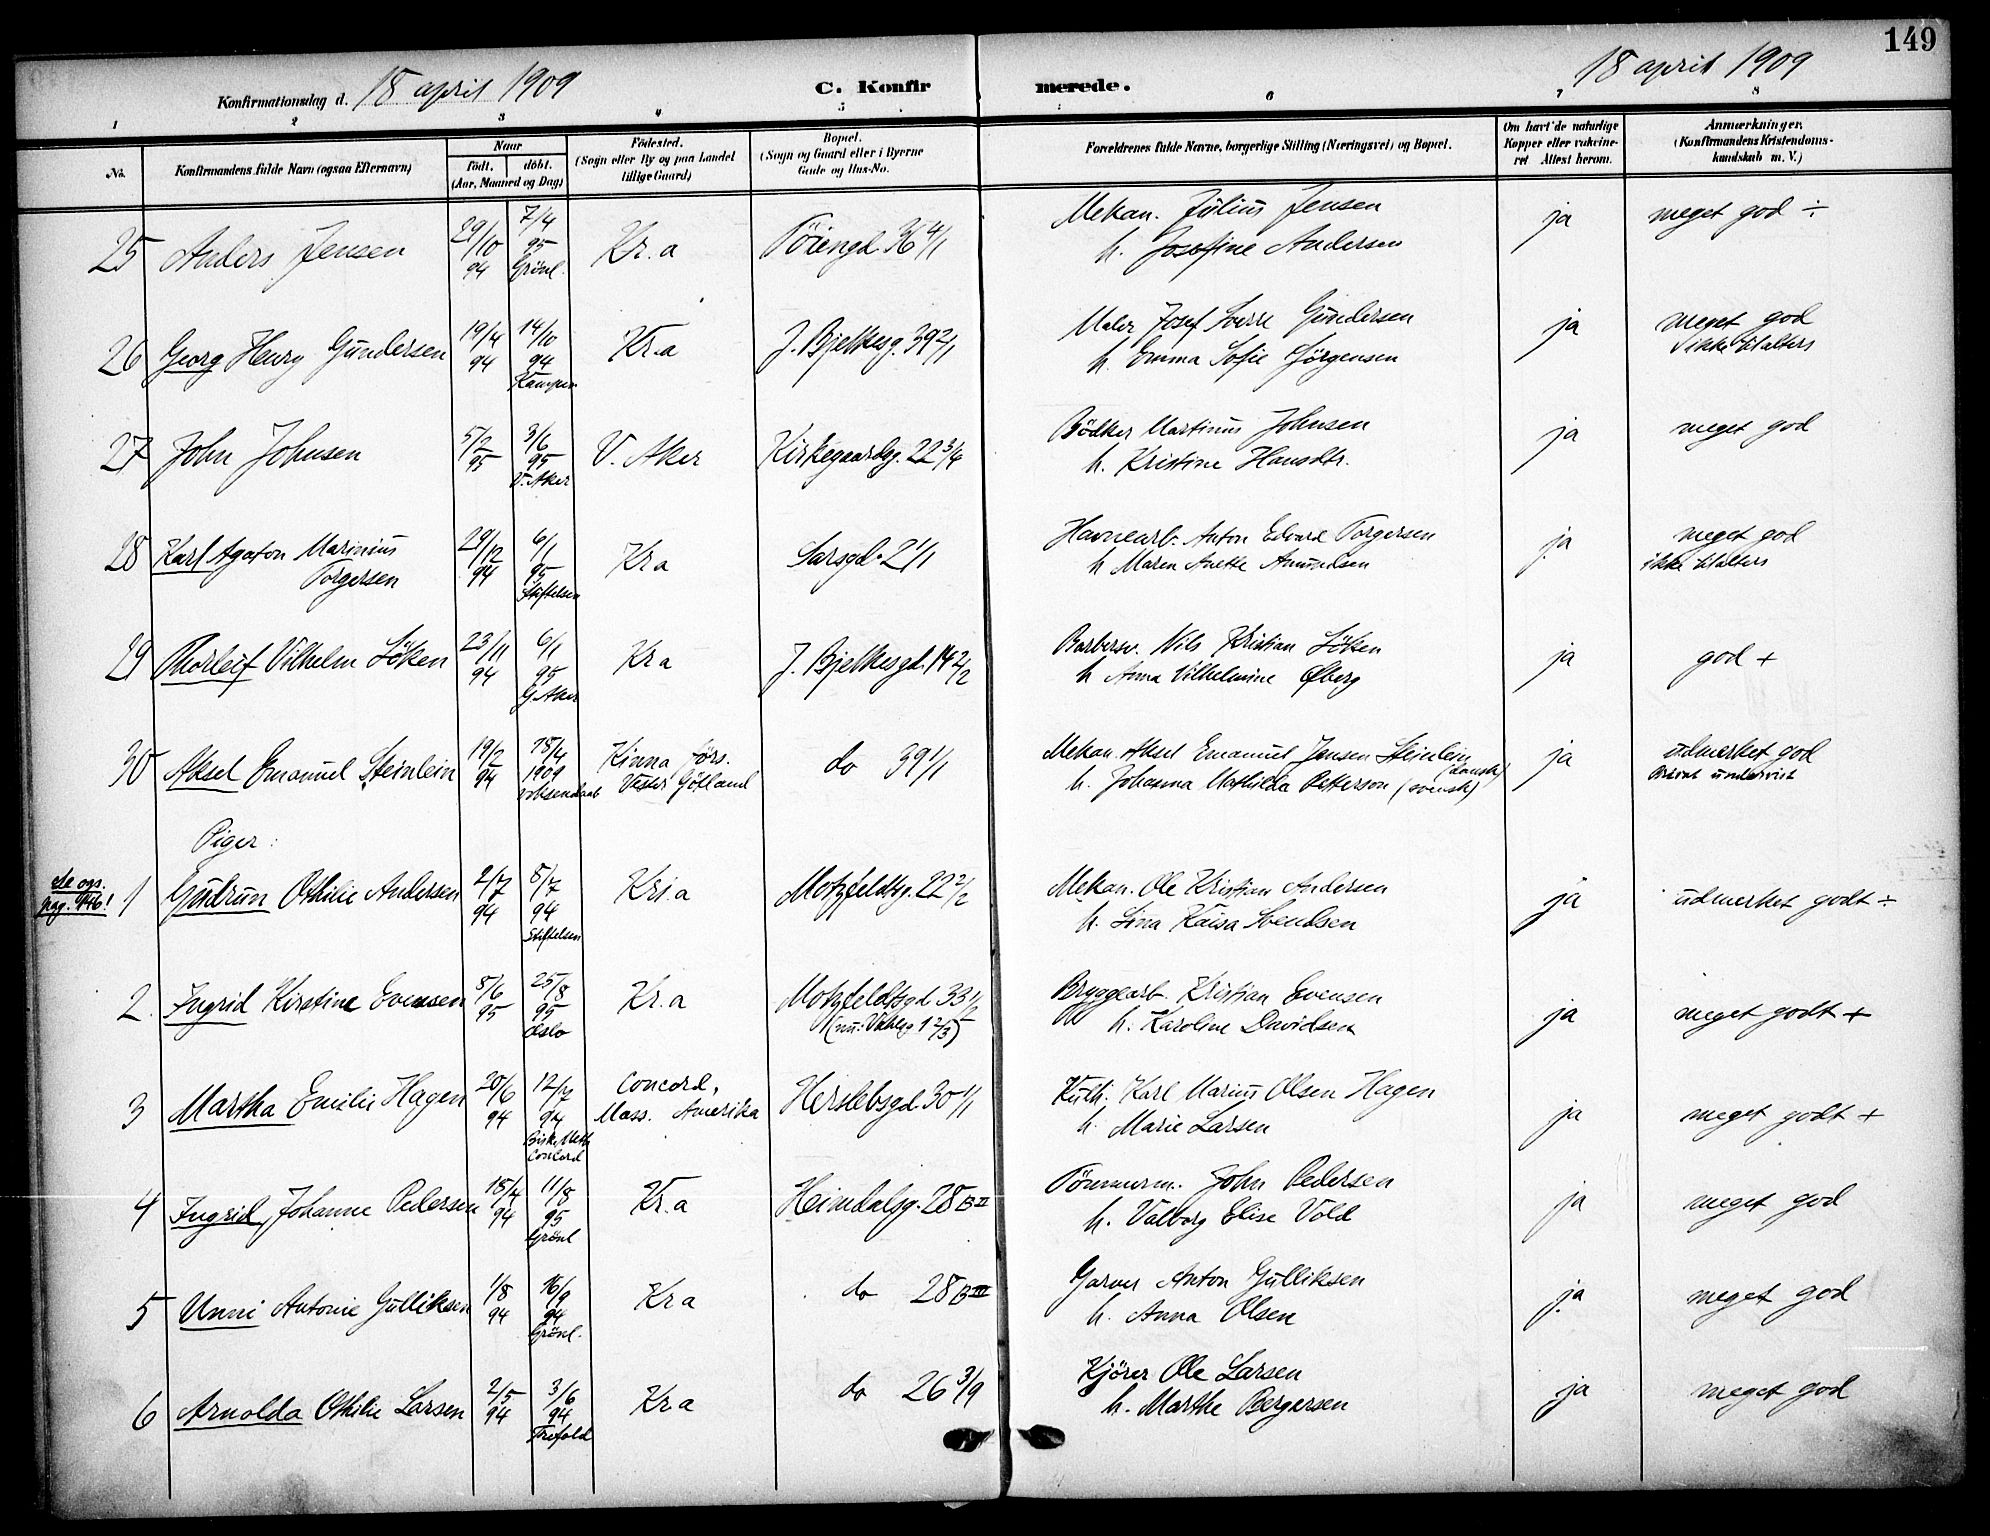 149
Konfirmationsdag d. 18 april 1909 C. Konfirmerede. 18 april 1909
1 2 3 4 5 6 7 8
No. Konfirmandens fulde Navn (ogsaa Efternavn) Naar født. døbt. (Aar, Maaned og Dag) Fødested. (Sogn eller By og paa Landet tillige Gaard) Bopæl. (Sogn og Gaard eller i Byerne Gade og Hus-No. Forældrenes fulde Navne, borgerlige Stilling (Næringsvei) og Bopæl. Om havt de naturlige Kopper eller vakcineret Attest herom. Anmærkninger. (Konfirmandens Kristendomskundskab m. V.)
25 Anders Jensen 29/10 94 7/4 95 Grönl. Kr.a Töiengd. 36 4/1 Mekan. Julius Jensen ja meget god ÷
h. Josefine Andersen
26 Georg Henry Gundersen 19/4 94 14/10 94 Kampen Kr.a J. Bjelkesg. 39 2/1 Maler Josef Sverre Gundersen ja meget god
h. Emma Sofie Jörgensen ikke tilalters
27 John Johnsen 5/2 95 3/6 95 V. Aker V. Aker Kirkegaardsg. 22 3/4 Bödker Martinus Johnsen ja meget god
h. Kristine Hansdtr.
28 Karl Agaton Marinius 29/12 94 6/1 95 Stiftelsen Kr a Sarsgd. 2 1/1 Havnearb. Anton Edvard Torgersen ja meget god
Torgersen h Maren Anette Amundsen ikke tilalters
29 Thorleif Vilhelm Löken 23/11 94 6/1 95 G. Aker Kr a J. Bjelkesgd. 14 2/2 Barbersv. Nils Kristian Löken ja god +
h Anna Vilhelmine Øberg
30 Aksel Emanuel Steinlein 19/2 94 18/4 1909 Kinna förs. Vester Götland do 39 1/1 Mekan. Aksel Emanuel Jensen Steinlein (dansk) ja udmerket god
h. Johanna Mathilda Petterson (svensk) Privat undervist
Piger:
Se ogs. pag. 146! 1 Gudrun Othilie Andersen 2/7 94 8/7 94 Stiftelsen Kri.a Motzfeldtsg. 22 2/2 Mekan. Ole Kristian Andersen ja udmerket godt ÷
h. Lina Kaisa Svendsen
2. Ingrid Kirstine Evensen 8/6 95 25/8 95 Oslo Kr.a Motzfeldtsgd 33 1/2 Bryggearb. Kristian Evensen ja meget godt +
h. Karoline Davidsen
3 Martha Emilie Hagen 20/6 94 12/7 94 Concord Concord, Mass. Amerika Herslebsgd. 30 1/1 Karl Marius Olsen Hagen ja meget godt +
h. Marie Larsen
4 Ingrid Johanne Pedersen 18/4 94 11/8 95 Grönl Kr.a Heimdalsg. 28 B II Tömmerm. John Pedersen ja meget god
h. Valborg Elise Vold
5 Unni Antonie Gulliksen 1/8 94 16/9 94 Grönl. Kr a do 28 B III Garver Anton Gulliksen ja meget god
h. Anna Olsen
6 Arnolda Othilie Larsen 2/5 94 3/6 94 Trefold Kr a do 26 3/9 Kjörer Ole Larsen ja meget god
h. Marthe Bergersen